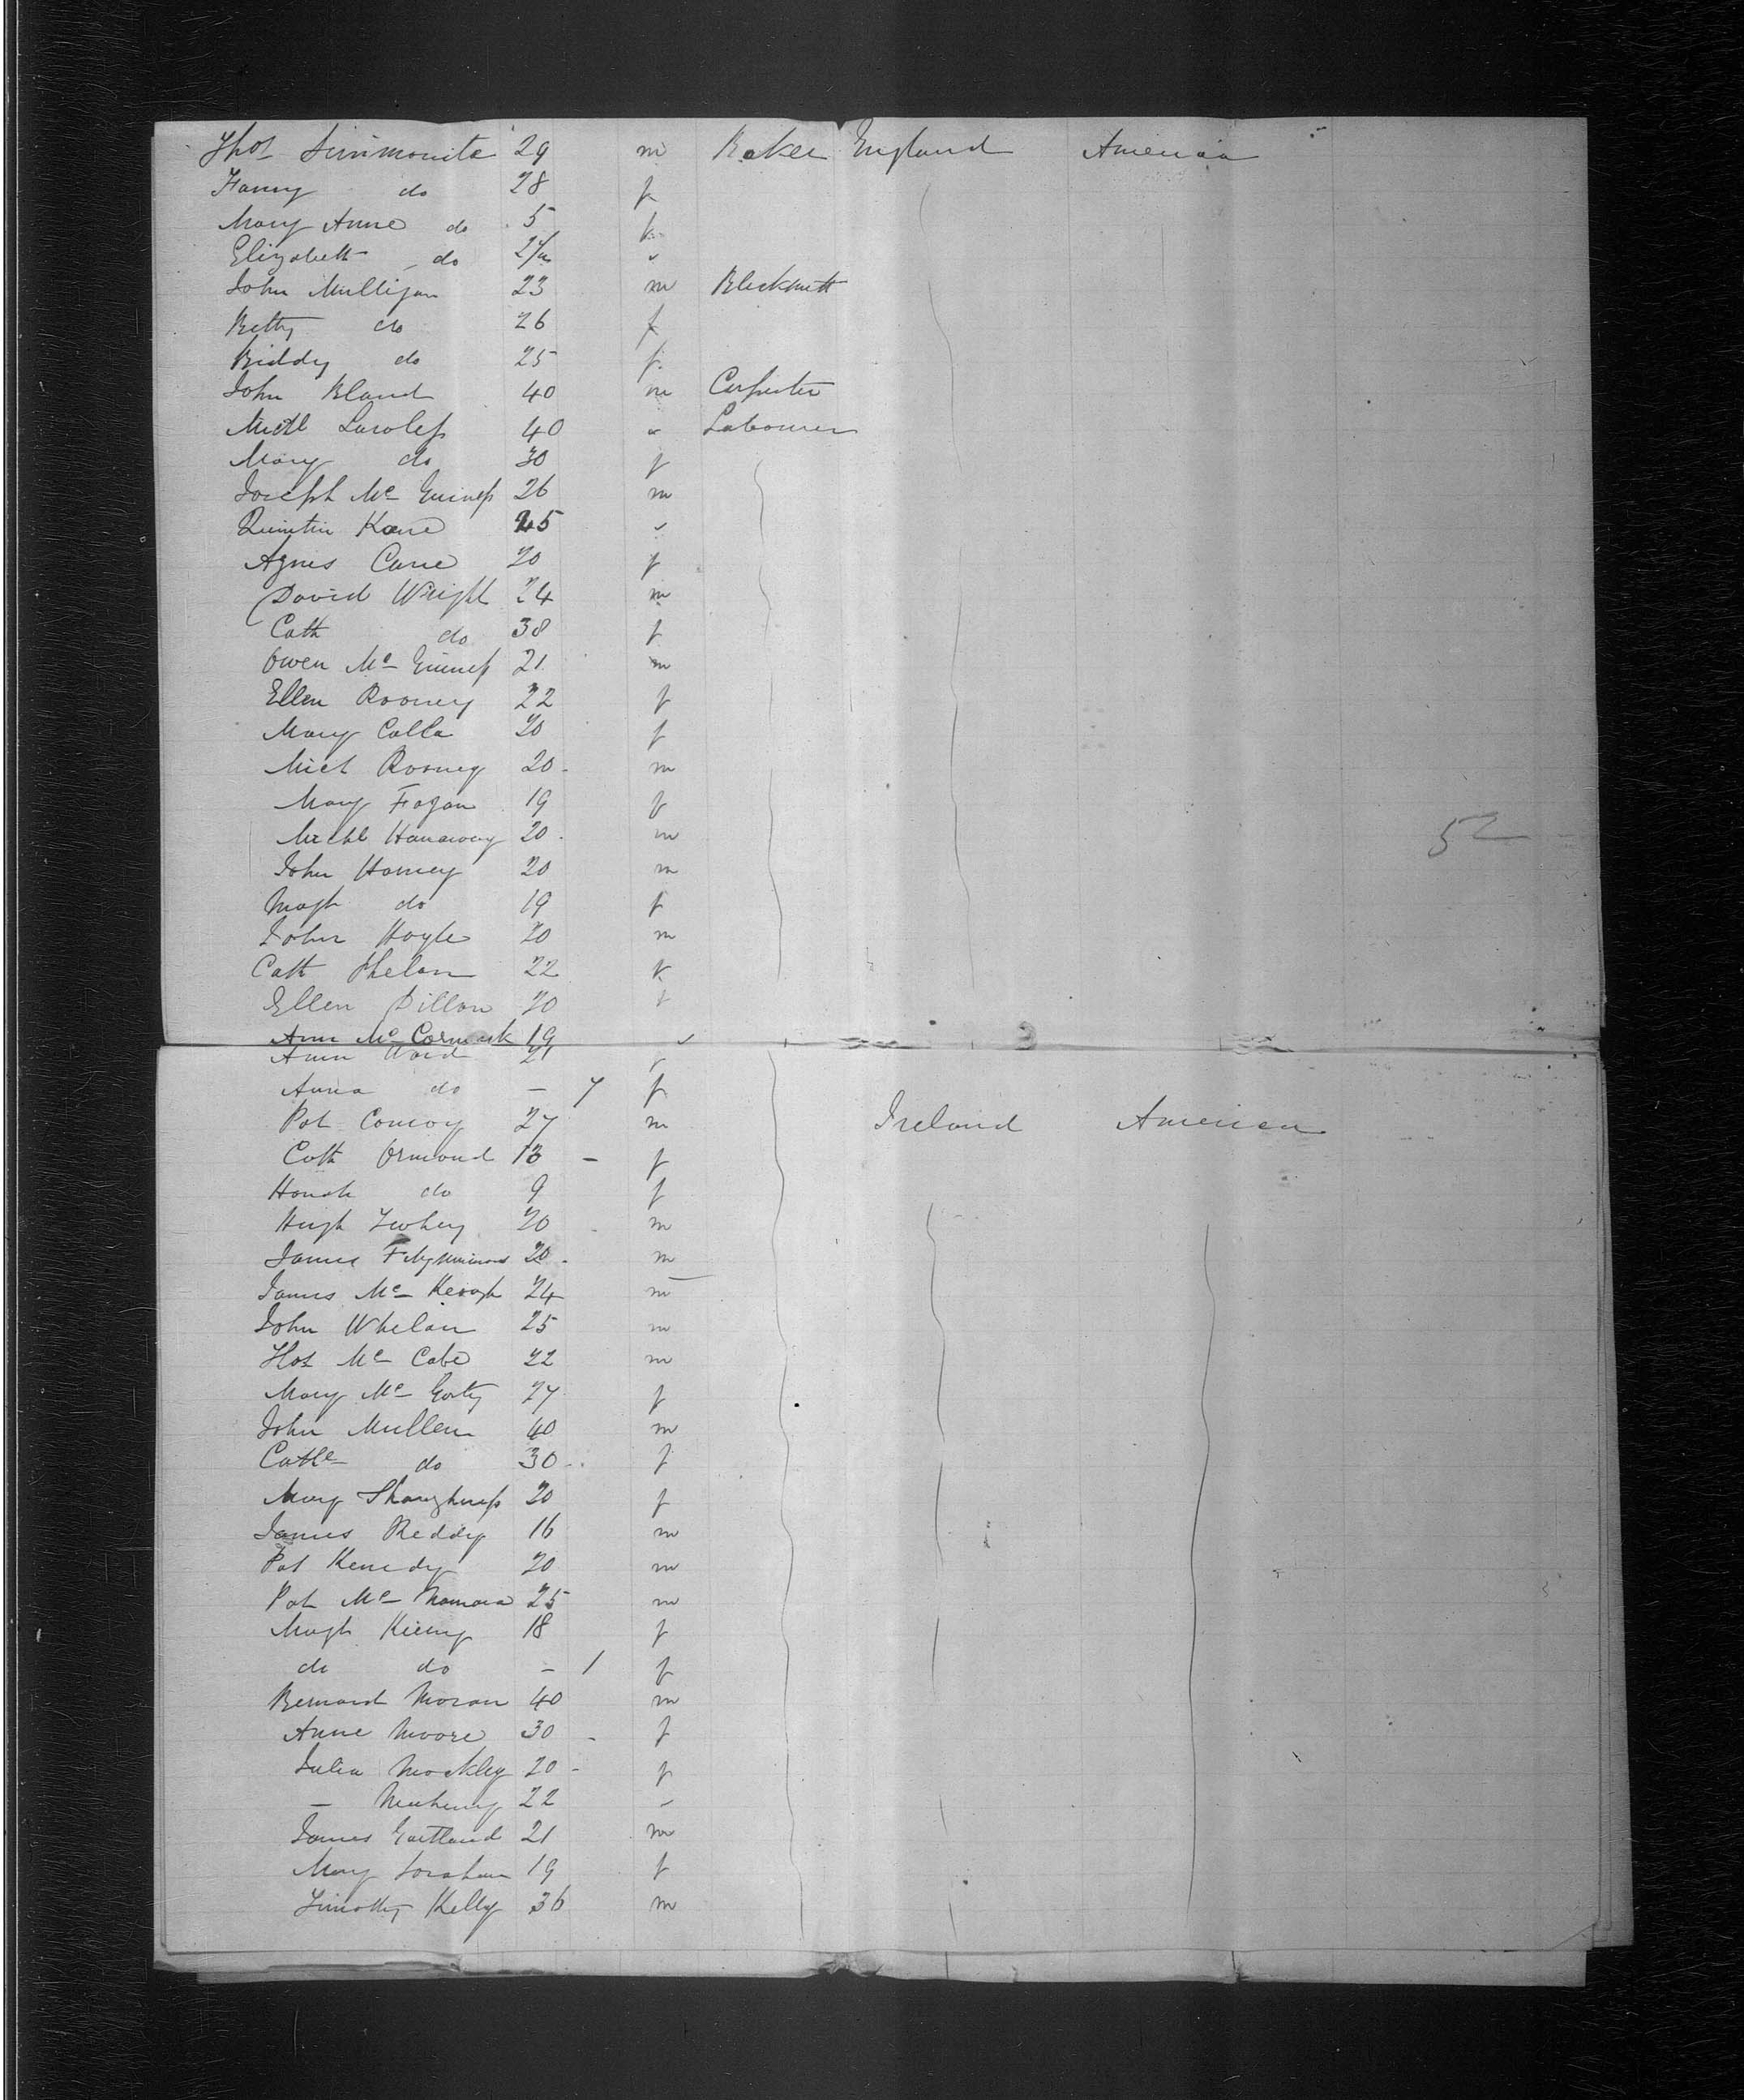 Thos Simmonite 29 m Baker England America
Fanny do 28 f
Mary Anne do 5 f
Elizabeth do
John Mulligan 23 m Blacksmith
Betty do 26 f
Biddy do 25 f
John Bland 40 m Carpenter
Michl Lawless 40 " Labourer
Mary do 30 f
Joseph Mc Guiness 26 m
Quintin Kane 45 "
Agnes Cane 20 f
David Wright 24 m
Cath do 38 f
Owen Mc Guiness 21 m
Ellen Rooney 22 f
Mary Calla 20 f
Mich Rooney 20 m
Mary Fagan 19 f
Michl Hanaway 20 m
52
John Haney 20 m
Magt do 19 f
John Hoyle 20 m
Cath Phelan 22 f
Ellen Dillon 20 f
Ann Mc Cormack 19 "
Ann Ward 21 f
Anna do – 7 f
Pat Conroy 27 m Ireland America
Cath Ormond 13 – f
Honah do 9 f
Hugh 20 m
James Fitzsimmons 20 m
James Mc Keough 24 m
John Whelan 25 m
Thos Mc Cabe 22 m
Mary Mc Gorty 27 f
John Mullen 40 m
Cathe do 30 f
Mary Shaughness 20 f
James Reddy 16 m
Pat Kenedy 20 m
Pat Mc Namara 25 m
Magt 18 f
do do – 1 f
Bernard Moran 40 m
Anne Moore 30 f
Julia Mockley 20 f
– 22 "
James Gartland 21 m
Mary 19 f
Timothy Kelly 36 m